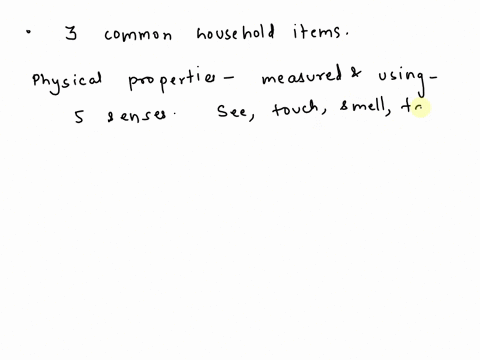 • 3 common household items.
Physical properties – measured & using –
5 senses. See, touch, smell, ta